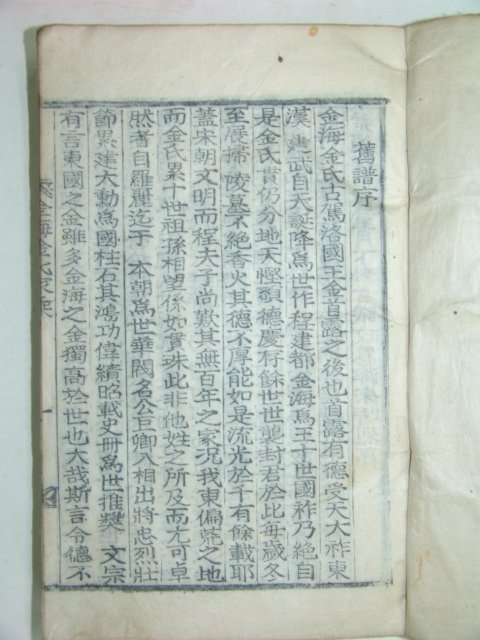 舊譜序
金海金氏古駕洛國王金首露之後也首露有德受天大祚東
漢建武自天誕降爲世作程建都金海爲王十世國祚乃絶自
是金氏貫仍分地天慳頴德慶存餘世世襲封君於此每歲冬
至展掃陵墓不絶香火其德不厚能如是流光於千有餘載耶
蓋宋朝文明而程夫子尚歎其無百年之家况我東偏藍之地
而金氏累十世祖孫相望係如貫珠此非他姓之所及而尤可卓
然者自羅麗迄于 本朝爲世華閥名公巨卿入相出將忠烈壯
節累建大勳爲國柱石其鴻功偉績昭載史冊爲世推奬 文宗
有言東國之金雖多金海之金獨高於世也大哉斯言令德不
金海金氏家乘
一